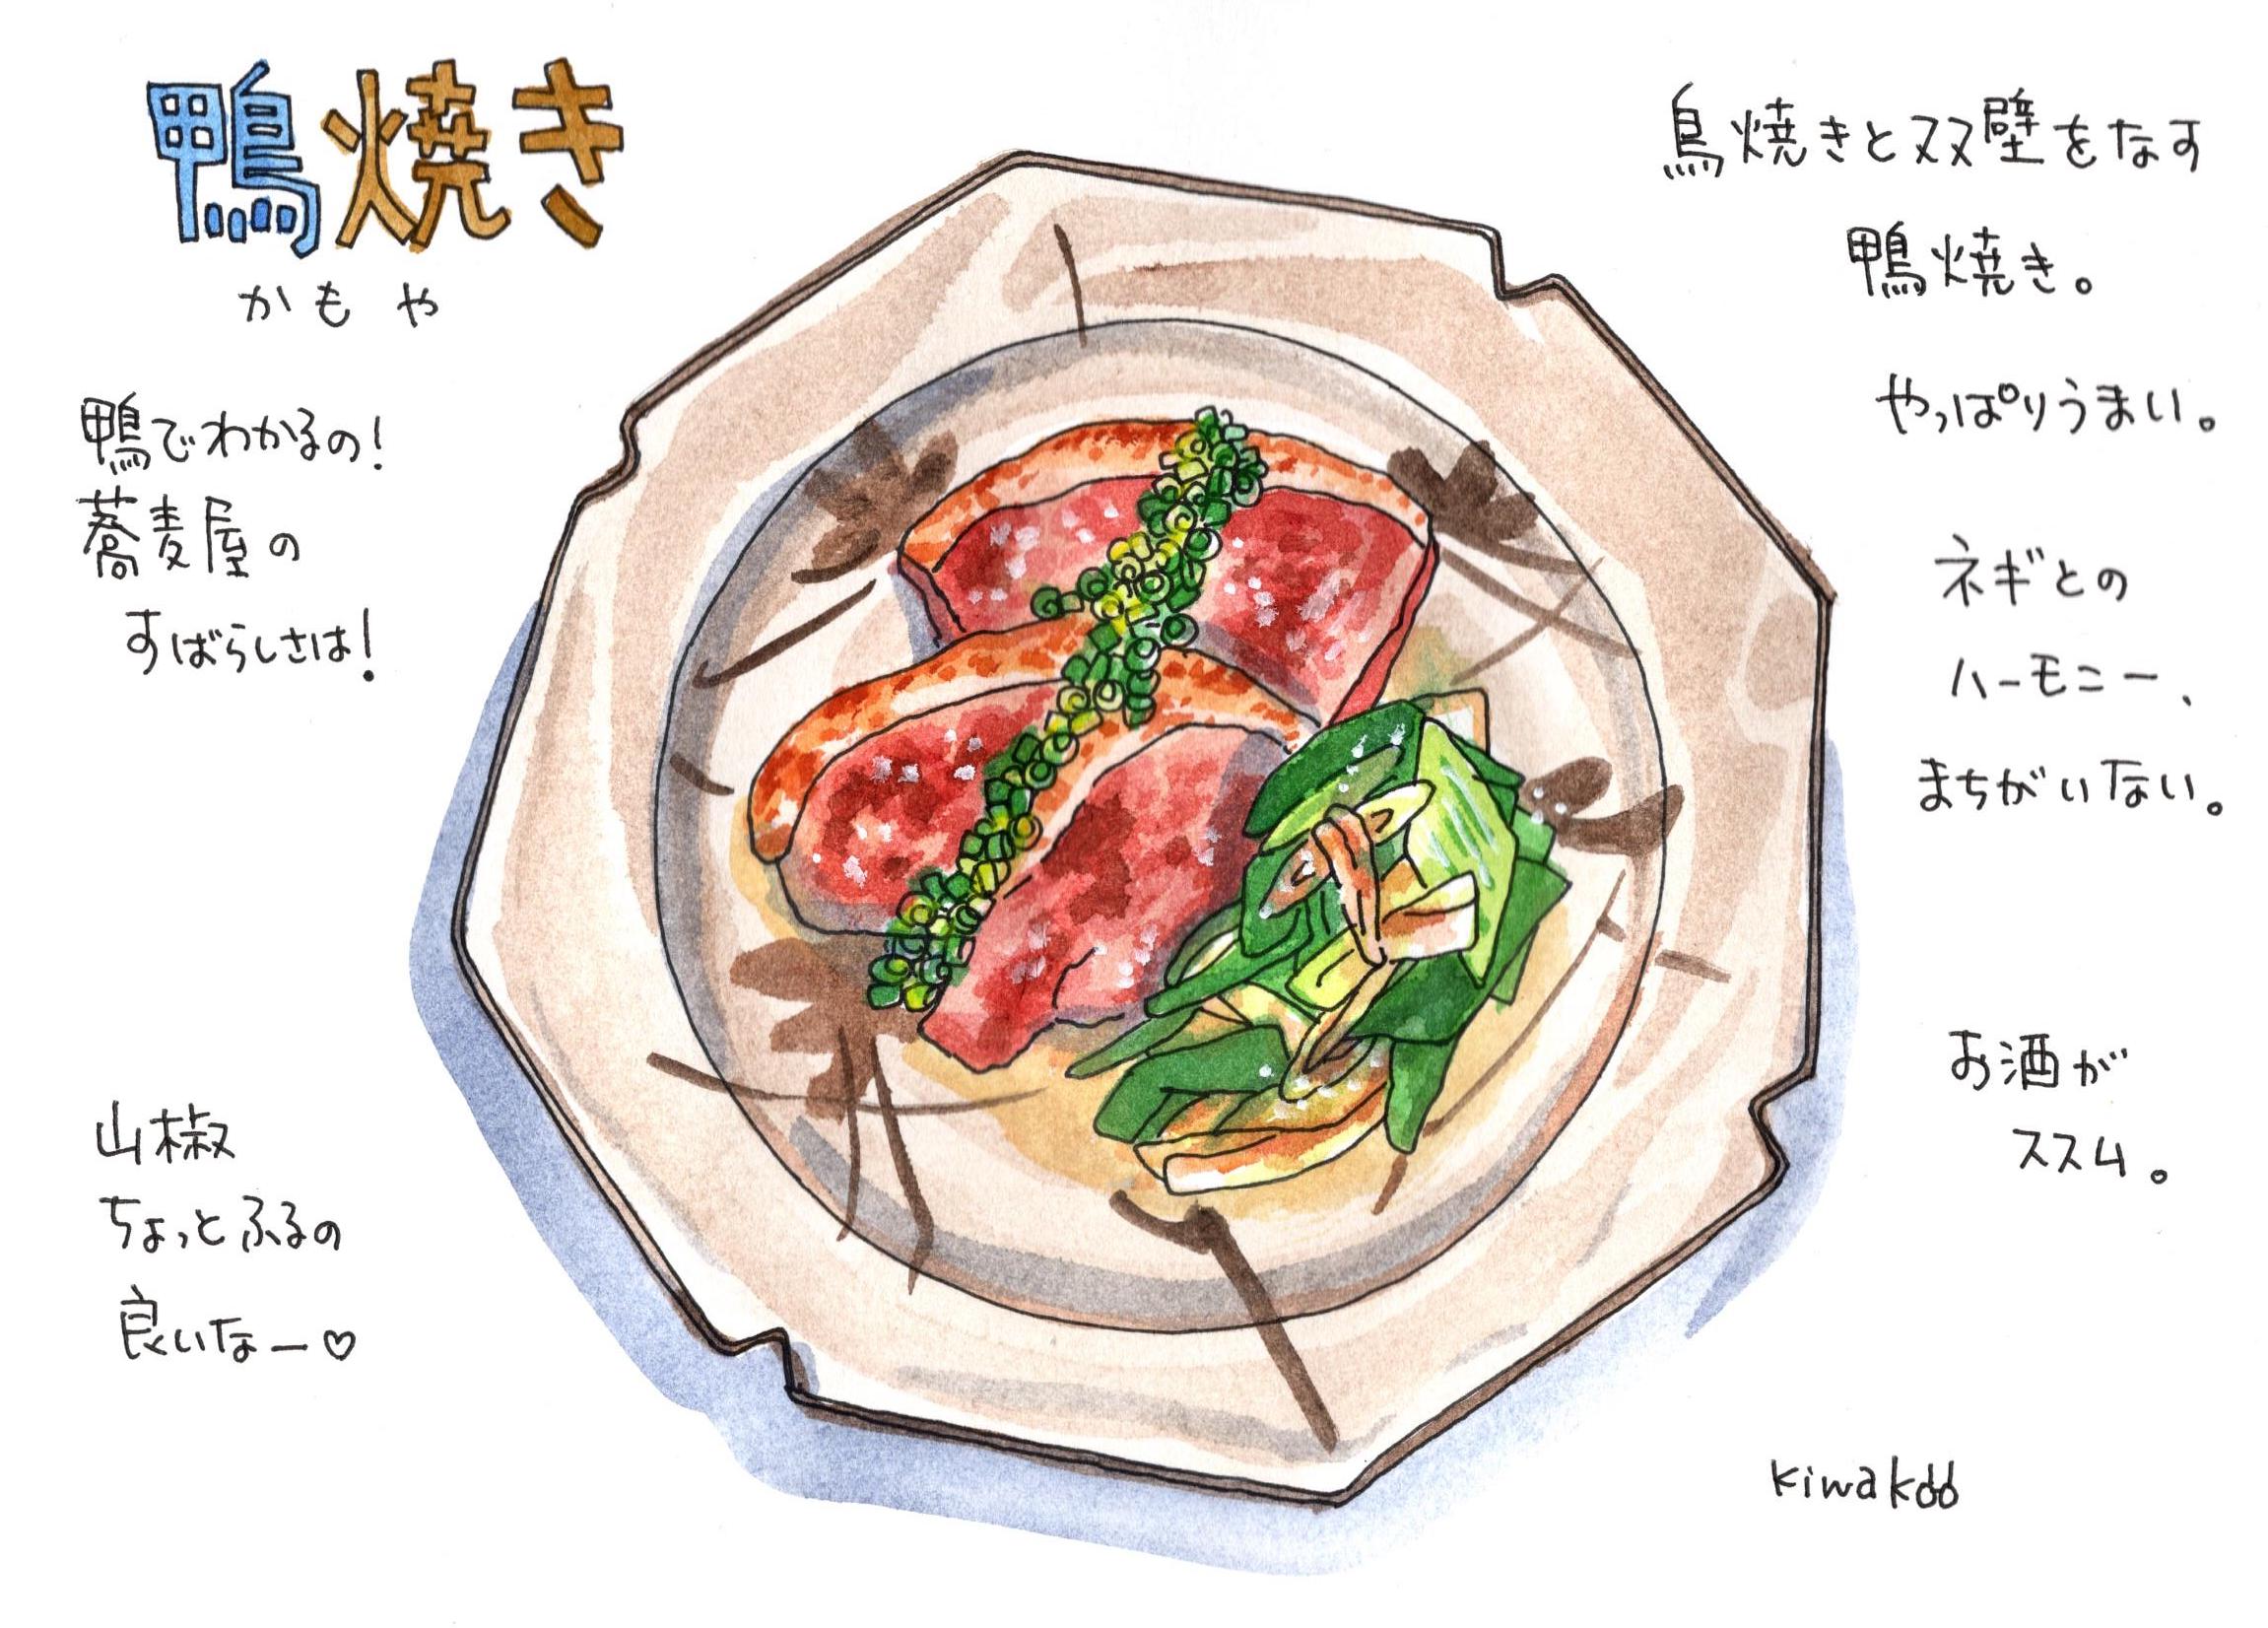 鴨焼き
かも や
鴨でわかるの!
蕎麦屋の
すばらしさは!
山椒
ちょっとふるの
良いなー♡
鳥焼きと双璧をなす
鴨焼き。
やっぱりうまい。
ネギとの
ハーモニー、
まちがいない。
お酒が
ススム。
kiwakoo